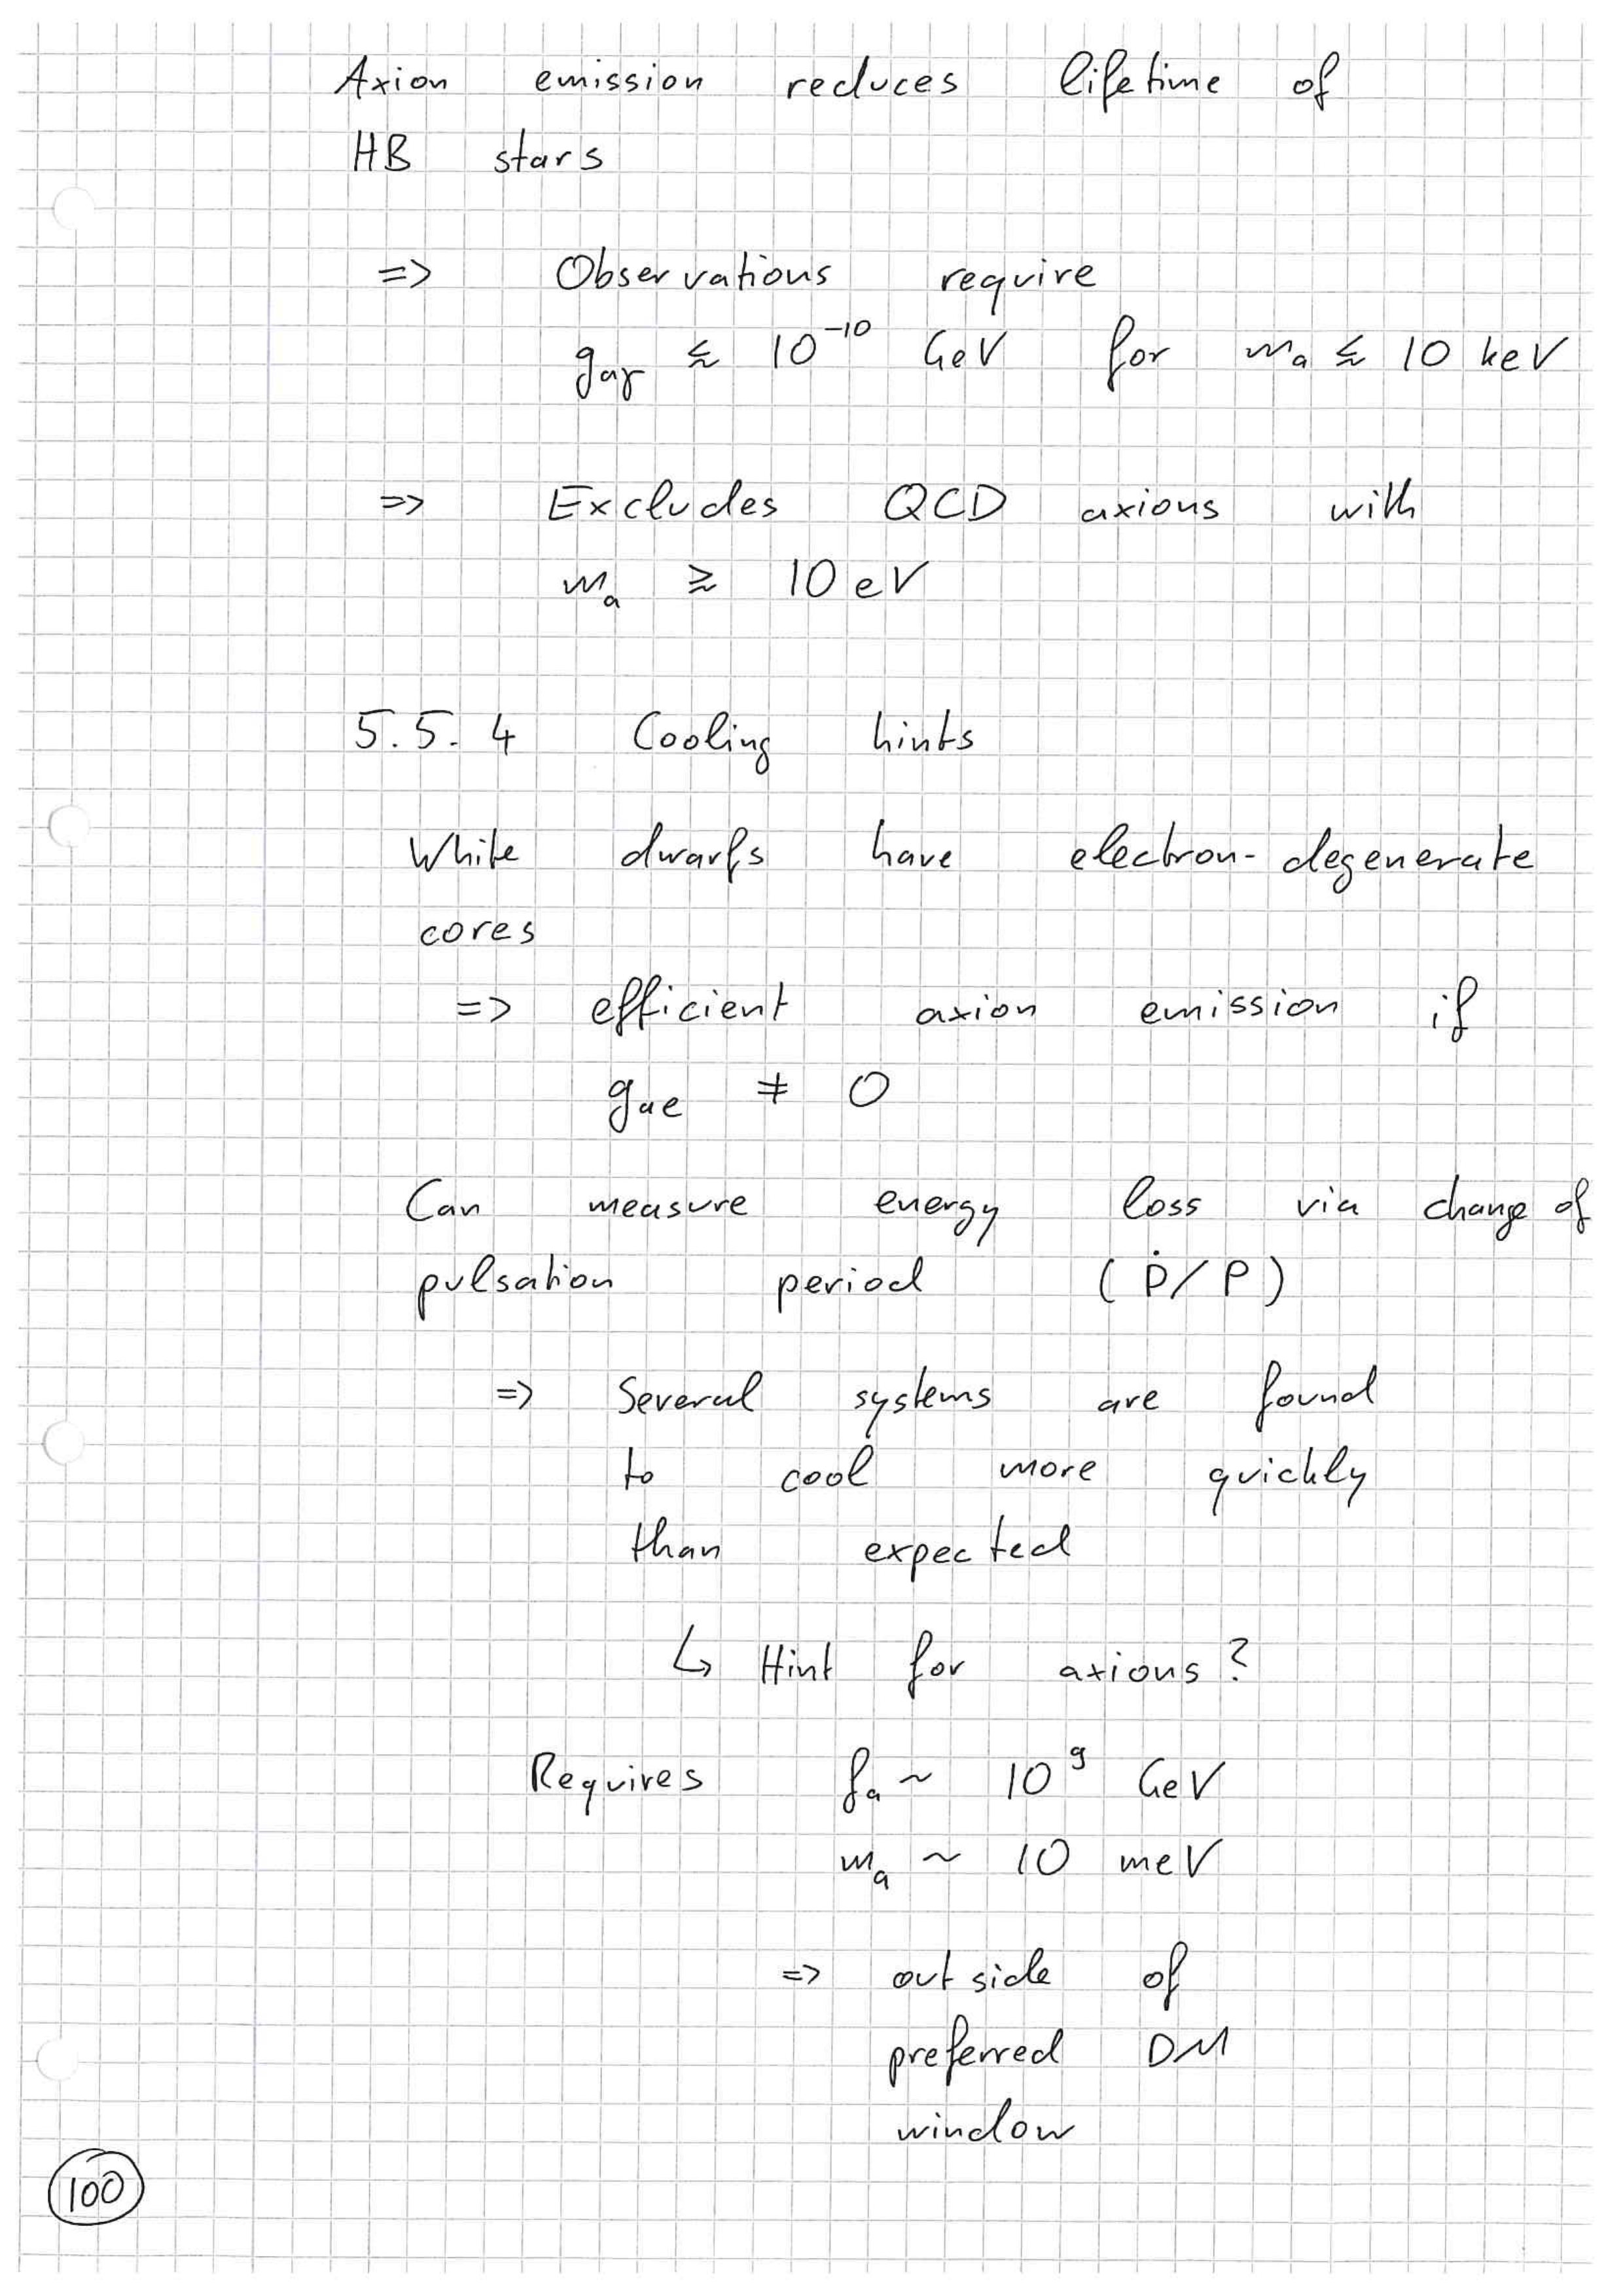 Axion emission reduces lifetime of
HB stars
=> Observations require
g_aγ ≲ 10^-10 GeV for m_a ≲ 10 keV
=> Excludes QCD axions with
m_a ≳ 10 eV
5.5.4 Cooling hints
White dwarfs have electron-degenerate
cores
=> efficient axion emission if
g_ae ≠ 0
Can measure energy loss via change of
pulsation period (Ṗ/P)
=> Several systems are found
to cool more quickly
than expected
↳ Hint for axions?
Requires f_a ~ 10^9 GeV
m_a ~ 10 meV
=> outside of
preferred DM
window
100